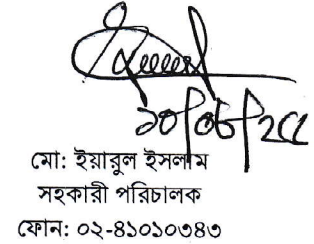 ১০/০৮/২৫
মো: ইয়ারুল ইসলাম
সহকারী পরিচালক
ফোন: ০২-৪১০১০৩৪৩